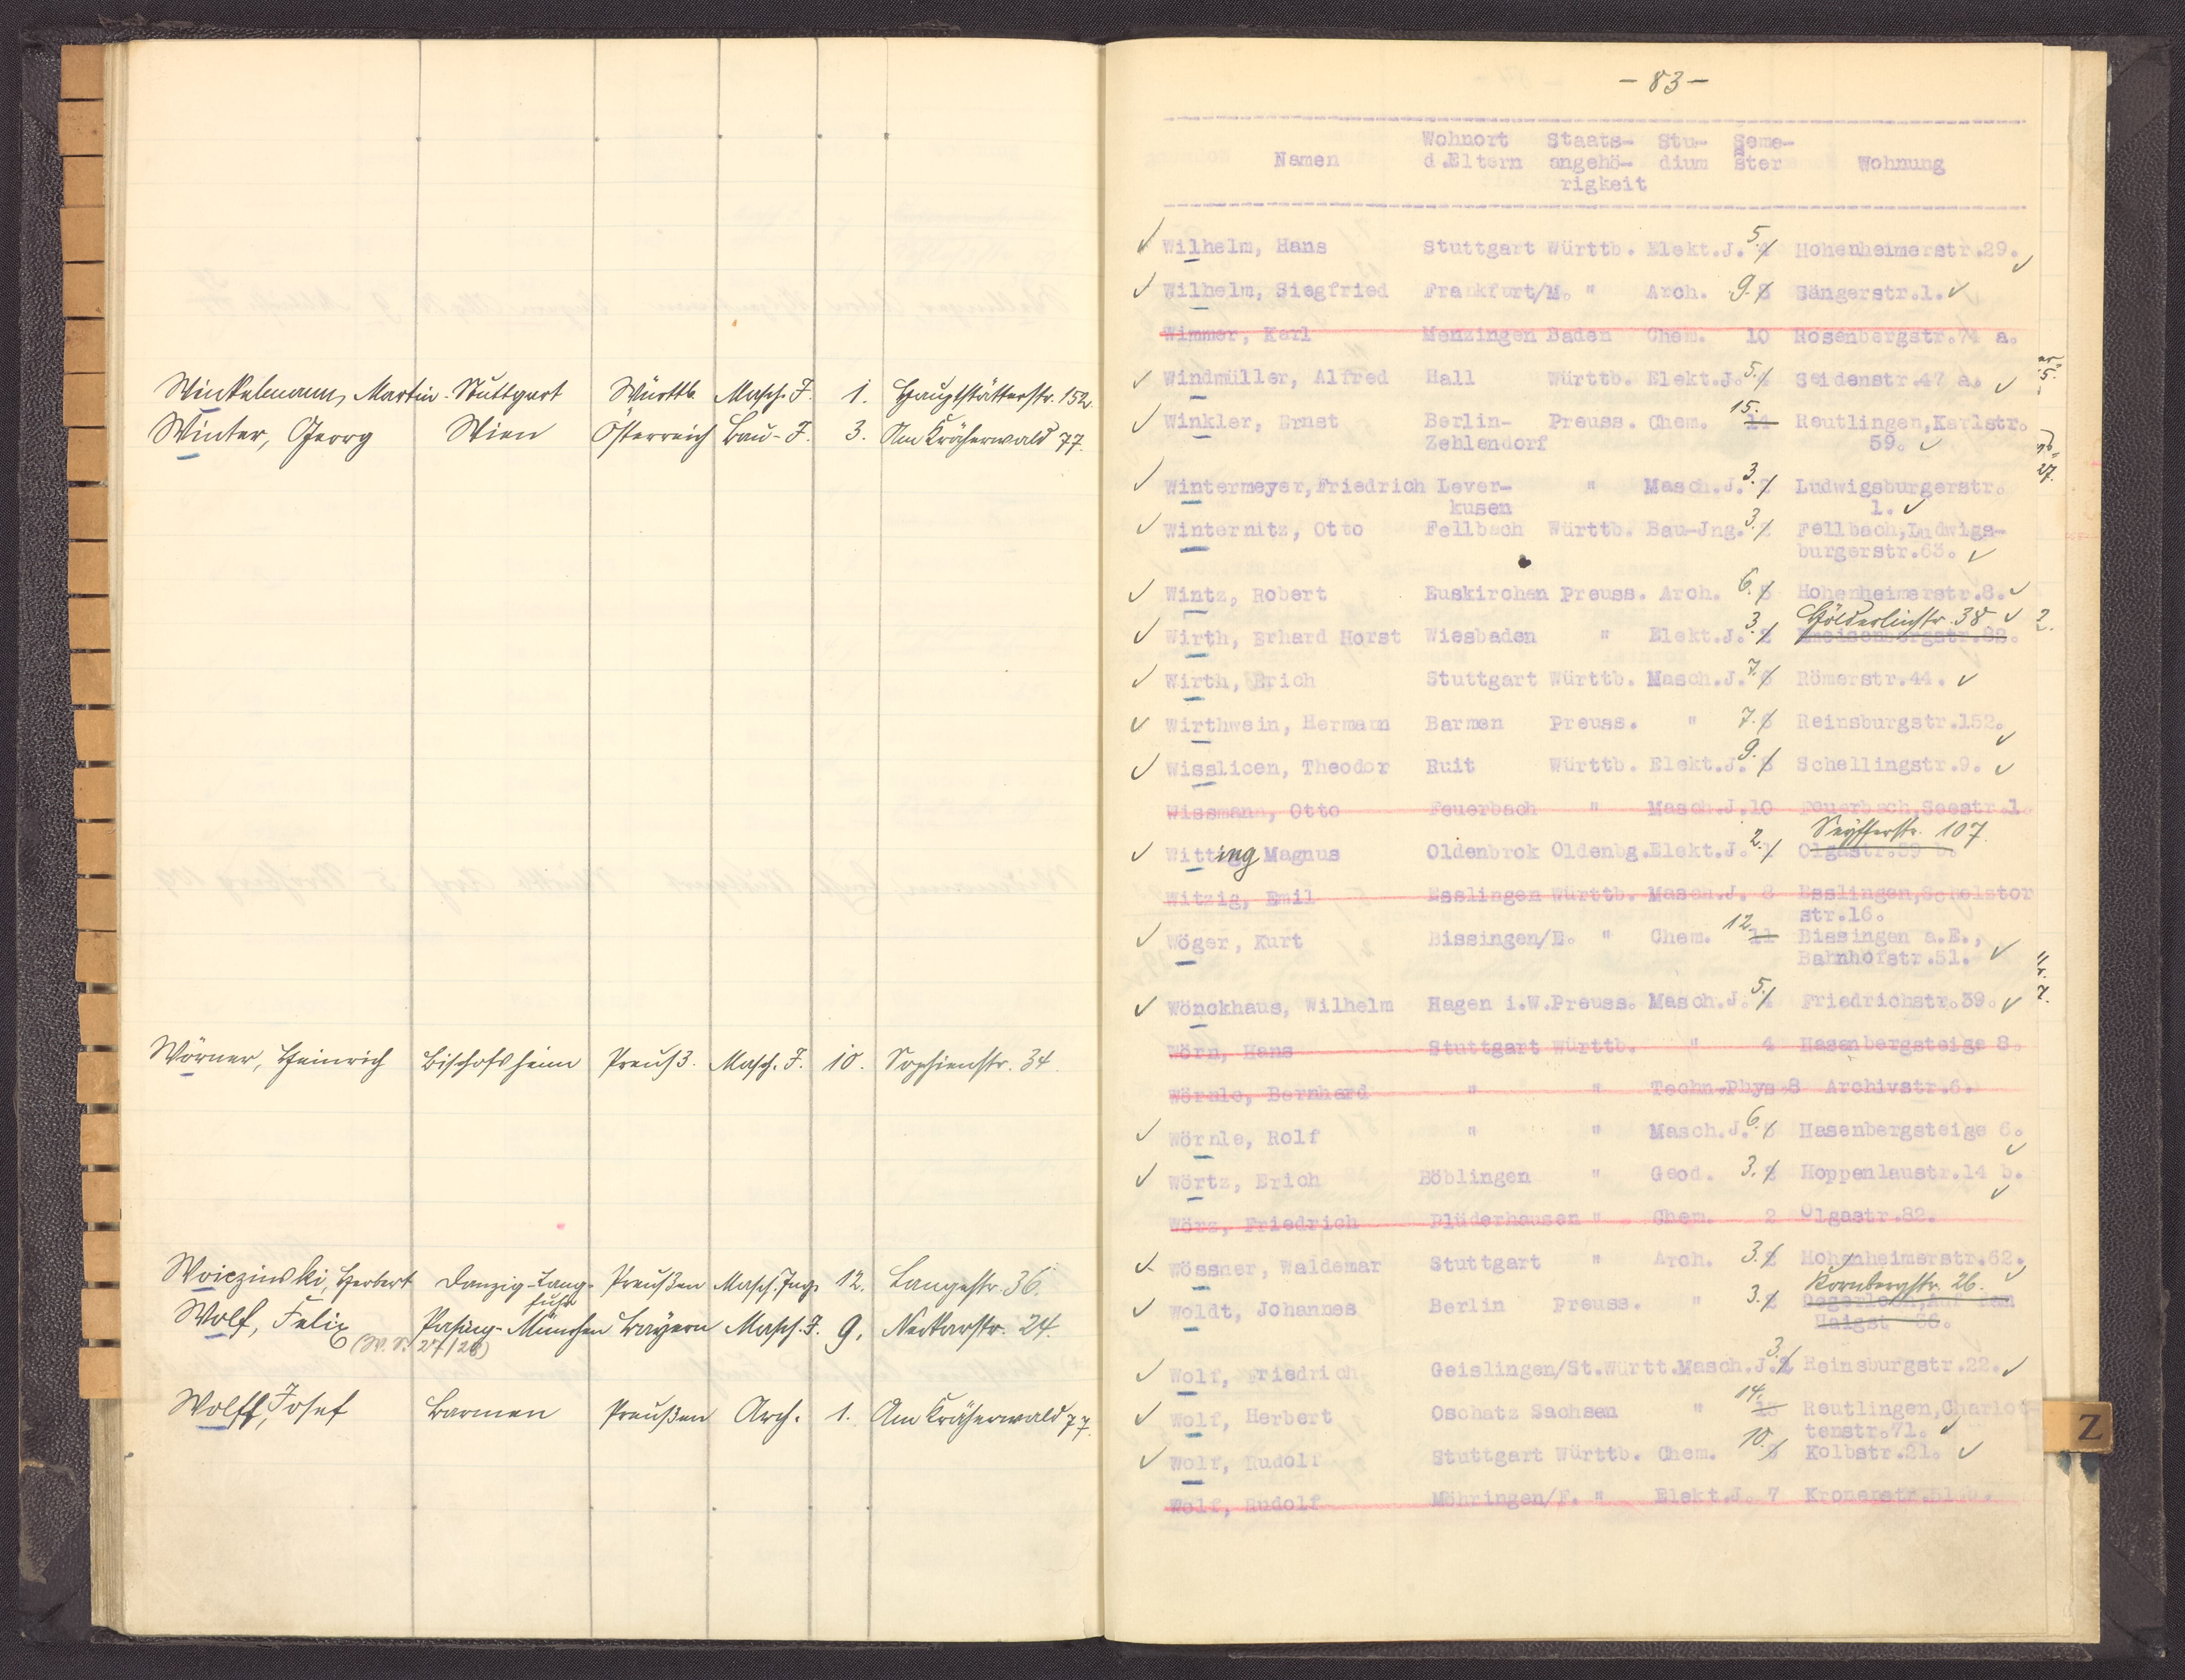 Winkelmann, Martin - Stuttgart Württb. Masch. I. 1. Hauptstätterstr. 152.
Winter, Georg Wien Österreich Bau-I. 3. Am Kräherwald 77.
Wörner, Heinrich Bischofsheim Preuß. Masch. I. 10. Sophienstr. 34.
Woiczinski, Herbert Danzig-Lang- Preußen Masch. Ing. 12. Langestr. 36.
fuhr
Wolf, Felix Pasing-München Bayern Masch. I. 9. Neckarstr. 24.
27/28)
Wolff, Josef Barmen Preußen Arch. 1. Am Kräherwald 77.
- 83 -
Wohnort Staats- Stu- Seme-
Namen d.Eltern angehö- dium ster Wohnung
rigkeit
Wilhelm, Hans Stuttgart Württb. Elekt.J. 5. 4 Hohenheimerstr.29.
Wilhelm, Siegfried Frankfurt/M. " Arch. 9. 8 Sängerstr.1.
Wimmer, Karl Menzingen Baden Chem. 10 Rosenbergstr.74 a.
Windmüller, Alfred Hall Württb. Elekt.J. 5. 4 Seidenstr.47 a.
Winkler, Ernst Berlin- Preuss. Chem. 15. 14 Reutlingen,Karlstr.
Zehlendorf 59.
Wintermeyer,Friedrich Lever- " Masch.J. 3. 2 Ludwigsburgerstr.
kusen 1.
Winternitz, Otto Fellbach Württb. Bau-Jng. 3. 2 Fellbach,Ludwigs-
burgerstr.63.
Wintz, Robert Euskirchen Preuss. Arch. 6. 5 Hohenheimerstr.8.
Hölderlinstr. 38
Wirth, Erhard Horst Wiesbaden " Elekt.J. 3. 2
Wirth, Erich Stuttgart Württb. Masch.J. 7. 6 Römerstr.44.
Wirthwein, Hermann Barmen Preuss. " 7. 6 Reinsburgstr.152.
Wisslicen, Theodor Ruit Württb. Elekt.J. 9. 8 Schellingstr.9.
Wissmann, Otto Feuerbach " Masch.J.10 Feuerbach,Seestr.1.
Seyfferstr. 107
Witting Magnus Oldenbrok Oldenbg.Elekt.J. 2. 1 Olgastr.59 b.
Witzig, Emil Esslingen Württb. Masch.J. 8 Esslingen,Schelztor
str.16.
Wöger, Kurt Bissingen/E. " Chem. 12. 11 Bissingen a.E.,
Bahnhofstr.51.
Wönckhaus, Wilhelm Hagen i.W.Preuss. Masch.J. 5. 4 Friedrichstr.39.
Wörn, Hans Stuttgart Württb. " 4 Hasenbergsteige 8.
Wörnle, Bernhard " " Techn.Phys.8 Archivstr.6.
Wörnle, Rolf " " Masch.J. 6. 5 Hasenbergsteige 6.
Wörtz, Erich Böblingen " Geod. 3. 2 Hoppenlaustr.14 b.
Wörz, Friedrich Plüderhausen " Chem. 2 Olgastr.82.
Wössner, Waldemar Stuttgart " Arch. 3. 2 Hohenheimerstr.62.
Kornbergstr. 26.
Woldt, Johannes Berlin Preuss. " 3. 2 Degerloch,Auf dem
Haigst 36.
Wolf, Friedrich Geislingen/St.Württ.Masch.J. 3. 2 Reinsburgstr.22.
Wolf, Herbert Oschatz Sachsen " 14. 13 Reutlingen,Charlot-
tenstr.71.
Wolf, Rudolf Stuttgart Württb. Chem. 10. Kolbstr.21.
Wolf, Rudolf Möhringen/F. " Elekt.J. 7
Z